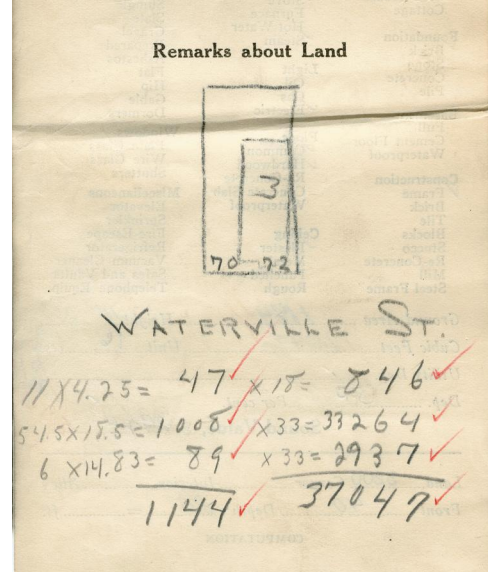 Remarks about Land
3
70-72
WATERVILLE ST.
11 X 4.25 = 47 X 18 = 846
54.5 X 18.5 = 1008 X 33 = 33264
6 X 14.83 = 89 X 33 = 2937
1144 37047